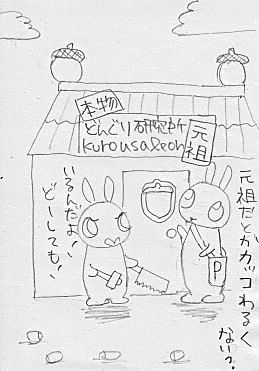 本物
どんぐり研究所
kurousaleon
元祖
いるんだよ!
どーしても!
元祖だとかカッコわるく
ない?
P